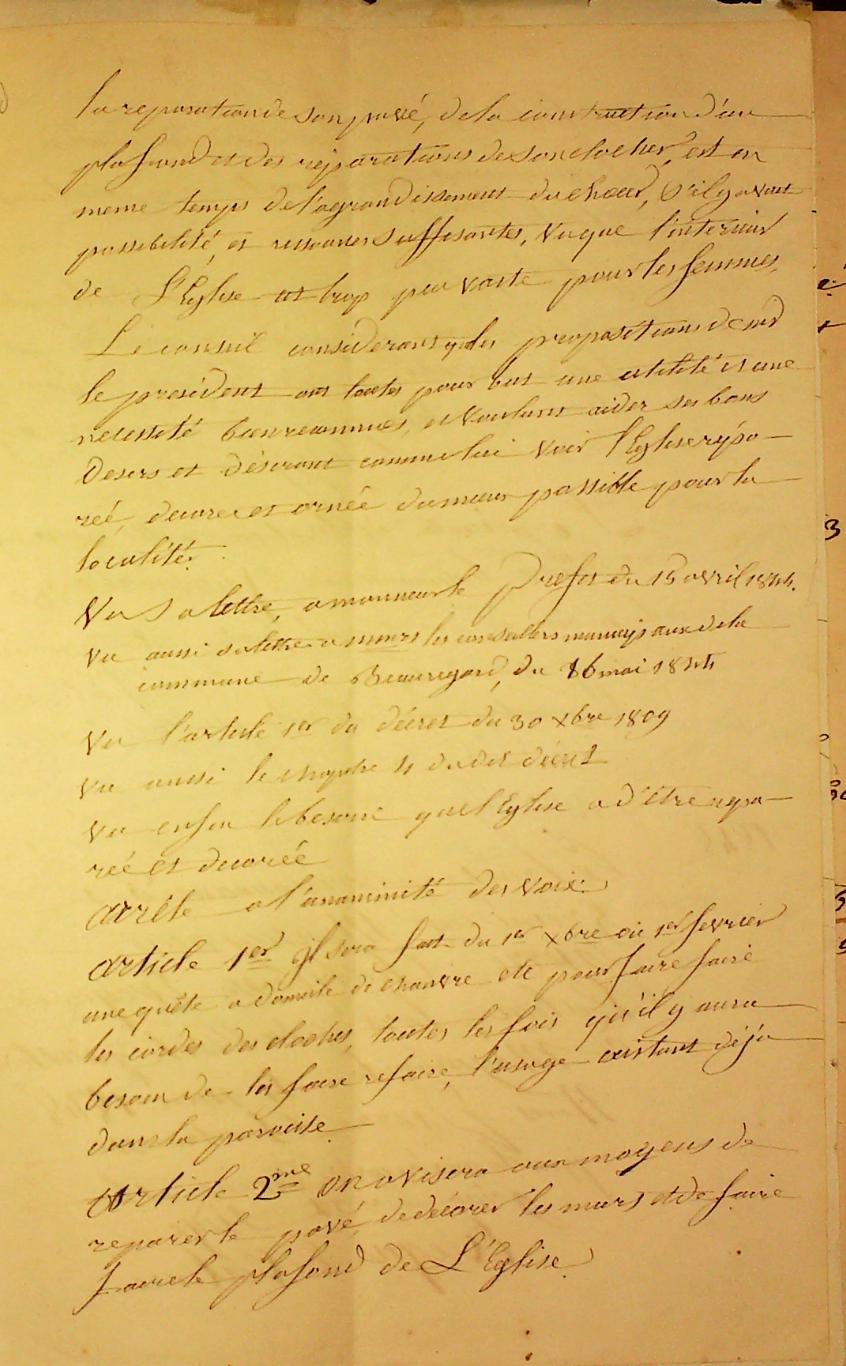 la reparation de son pavé, de la construction d'un
plafond et des réparations de son clocher, est en
meme temps de l'agrandissement du chœur, s'il y avait
possibilité, et ressources suffisantes, vu que l'interieur
de L'Eglise est trop peu vaste pour les femmes,
Le conseil considerant q. les propositions de
le président ont toutes pour but une utilité et une
nécessité bien reconnues, et voulant aider ses bons
desirs et désirant comme lui voir l'Eglise répa—
reé, decoreé et ornée du mieux possible pour la
localité.
Vu Sa lettre, a monsieur le Prefet du 15 avril 1844.
Vu aussi sa lettre a les conseillers municipaux de la
commune de Beauregard, du 16 mai 1844
Vu l'article 1er du décret du 30 xbre 1809
Vu aussi le chapitre 4 du dit décret
Vu enfin le besoin que l'Eglise a d'être repa—
reé et decorée
arrête a l'unaminité des voix
article 1er Il sera fait du 1er xbre au 1er fevrier
une quête a domicile de chanvre etc pour faire faire
les cordes des cloches, toutes les fois qu'il y aura
besoin de les faire refaire, l'usage existant déjà
dans la paroisse.
Article 2me on avisera aux moyens de
reparer le pavé, de décorer les murs et de faire
faire le plafond de L'Eglise.